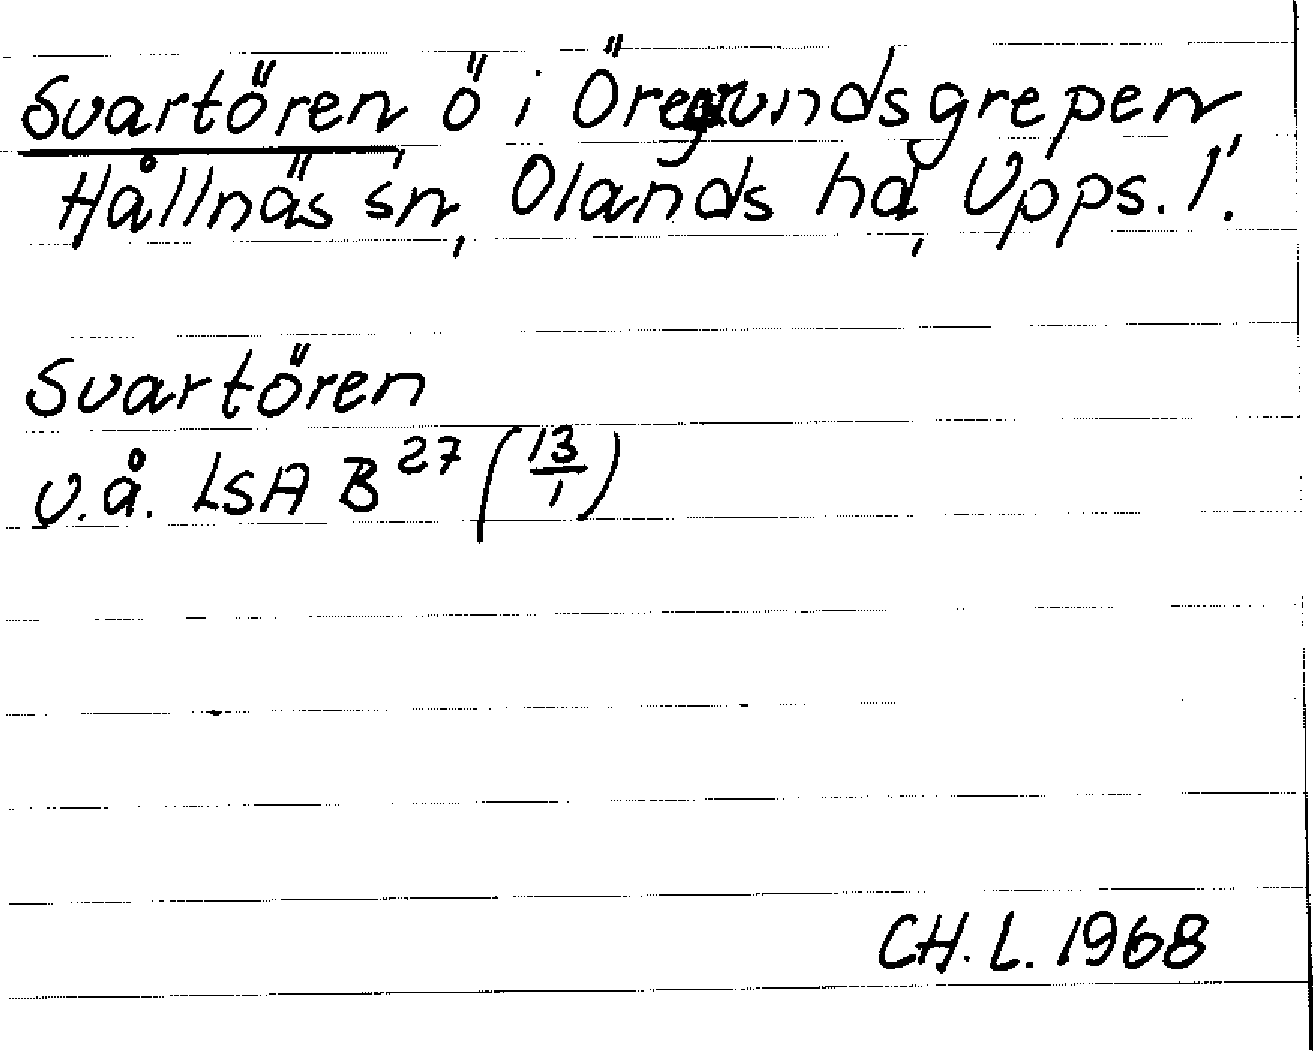 Svartören, ö i Öregrundsgrepen,
Hållnäs sn, Olands hd, Upps. l.
Svartören
u.å. LSA B 27 (13/1)
CH. L. 1968